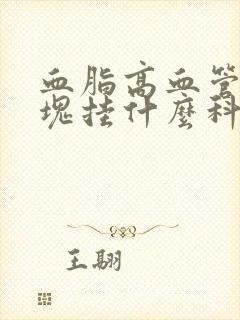 血脂高血管
塊挂什麼科
王翮